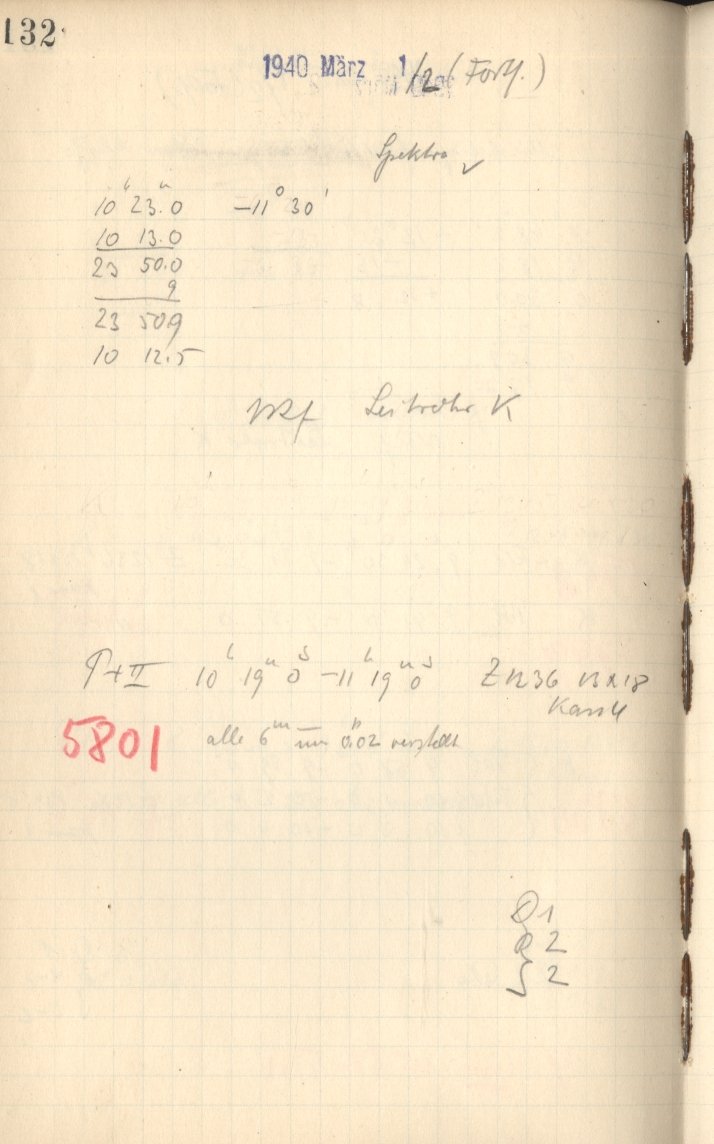 132
1940 März 1/2 (Forts.)
Spektro
10ʰ 23.0 -11° 30'
10 13.0
23 50.0
9
23 50.9
10 12.5
Leitrohr K
P+II 10ʰ 19ᵐ 0ˢ - 11ʰ 19ᵐ 0ˢ Z 1236 13x18
Kass 4
5801 alle 6ᵐ um 0.02 verstellt
D 1
R 2
S 2